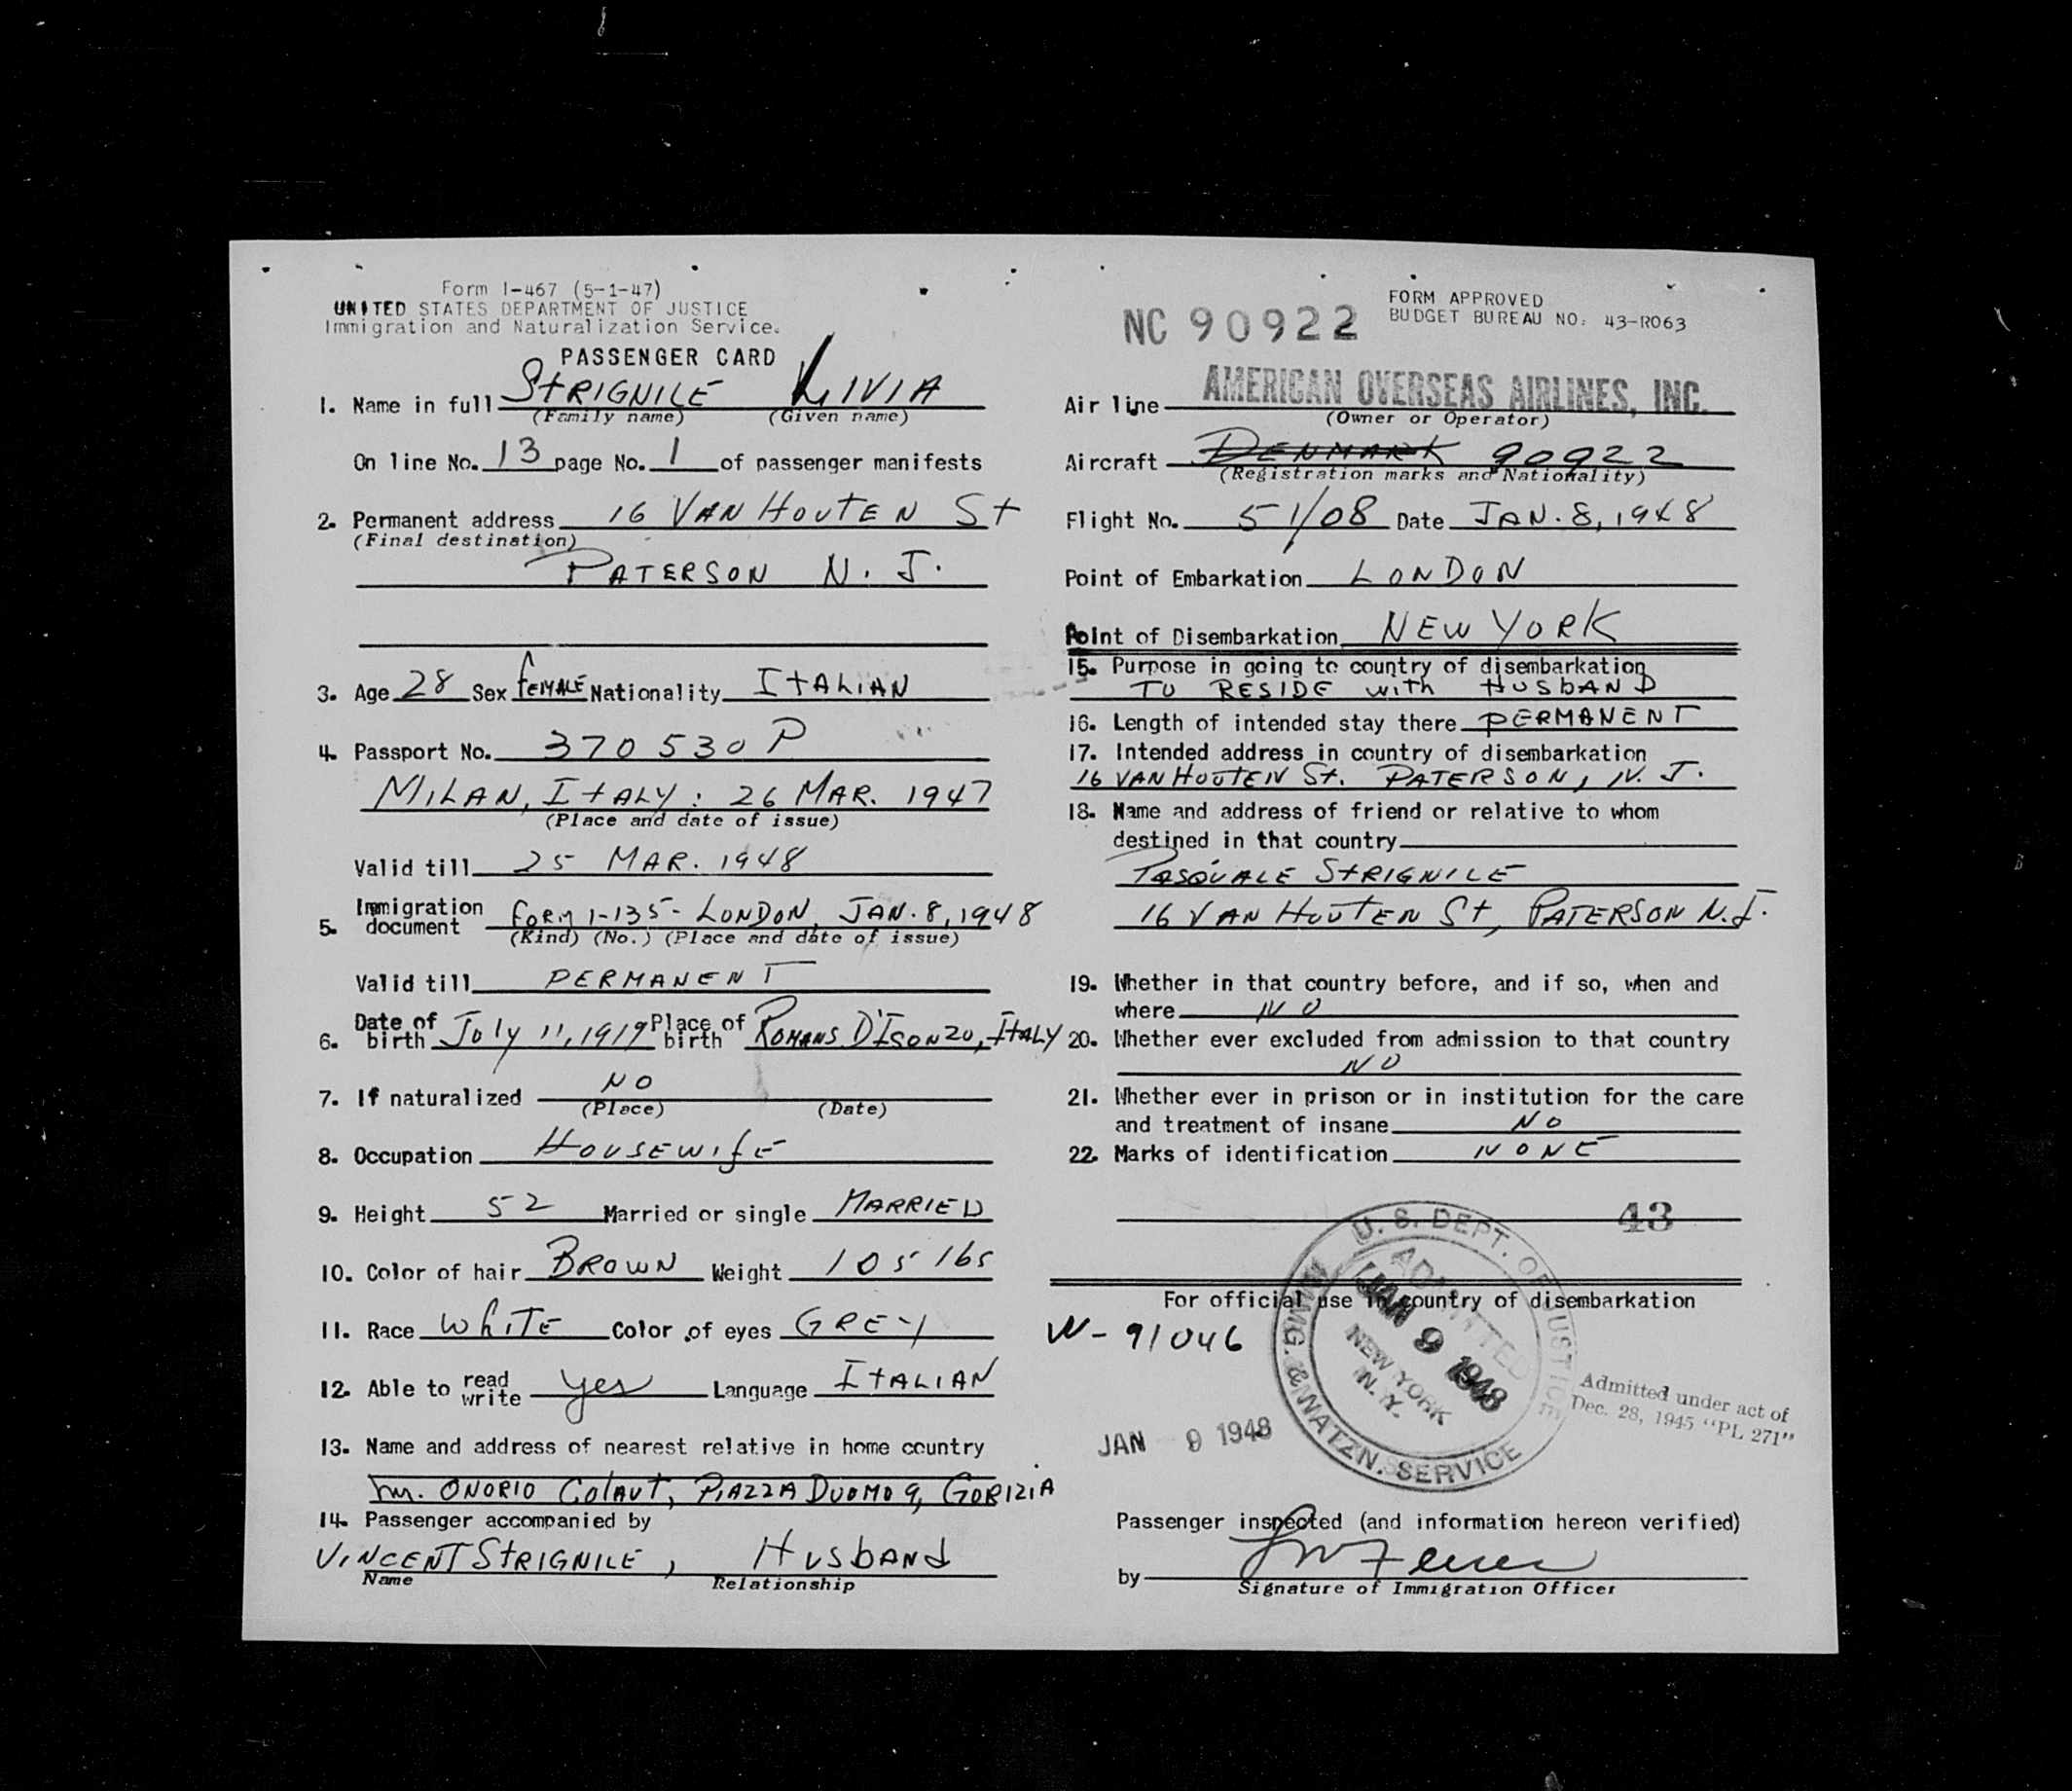 Form I-467 (5-1-47)
UNITED STATES DEPARTMENT OF JUSTICE
Immigration and Naturalization Service.
PASSENGER CARD
1. Name in full STRIGNILE LIVIA
(Family name) (Given name)
On line No. 13 page No. 1 of passenger manifests
2. Permanent address 16 VAN HOUTEN St
(Final destination)
PATERSON N. J.
3. Age 28 Sex FEMALE Nationality ITALIAN
4. Passport No. 370530 P
MILAN, ITALY: 26 MAR. 1947
(Place and date of issue)
Valid till 25 MAR. 1948
5. Immigration document FORM 1-135- LONDON, JAN. 8, 1948
(Kind) (No.) (Place and date of issue)
Valid till PERMANENT
6. Date of birth July 11, 1919 Place of birth ROMANS D'ISONZO, ITALY
7. If naturalized NO
(Place) (Date)
8. Occupation HOUSEWIFE
9. Height 52 Married or single MARRIED
10. Color of hair BROWN Weight 105 lbs
11. Race WHITE Color of eyes GREY
12. Able to read write yes Language ITALIAN
13. Name and address of nearest relative in home country
ONORIO COLAUT, PIAZZA DUOMO 9, GORIZIA
14. Passenger accompanied by
VINCENT STRIGNILE, HUSBAND
Name Relationship
NC 90922
FORM APPROVED
BUDGET BUREAU NO. 43-R063
Air line AMERICAN OVERSEAS AIRLINES, INC.
(Owner or Operator)
Aircraft DENMARK 90922
(Registration marks and Nationality)
Flight No. 51/08 Date JAN. 8, 1948
Point of Embarkation LONDON
Point of Disembarkation NEW YORK
15. Purpose in going to country of disembarkation
TO RESIDE WITH HUSBAND
16. Length of intended stay there PERMANENT
17. Intended address in country of disembarkation
16 VAN HOUTEN St. PATERSON, N. J.
18. Name and address of friend or relative to whom
destined in that country
PASQUALE STRIGNILE
16 VAN HOUTEN St, PATERSON N.J.
19. Whether in that country before, and if so, when and
where NO
20. Whether ever excluded from admission to that country
NO
21. Whether ever in prison or in institution for the care
and treatment of insane NO
22. Marks of identification NONE
43
For official use in country of disembarkation
W-91046
U. S. DEPT. OF JUSTICE
IMMIG. & NATZN. SERVICE
ADMITTED
JAN 9 1948
NEW YORK
N. Y.
Admitted under act of
Dec. 28, 1945 "PL 271"
JAN 9 1948
Passenger inspected (and information hereon verified)
by
Signature of Immigration Officer